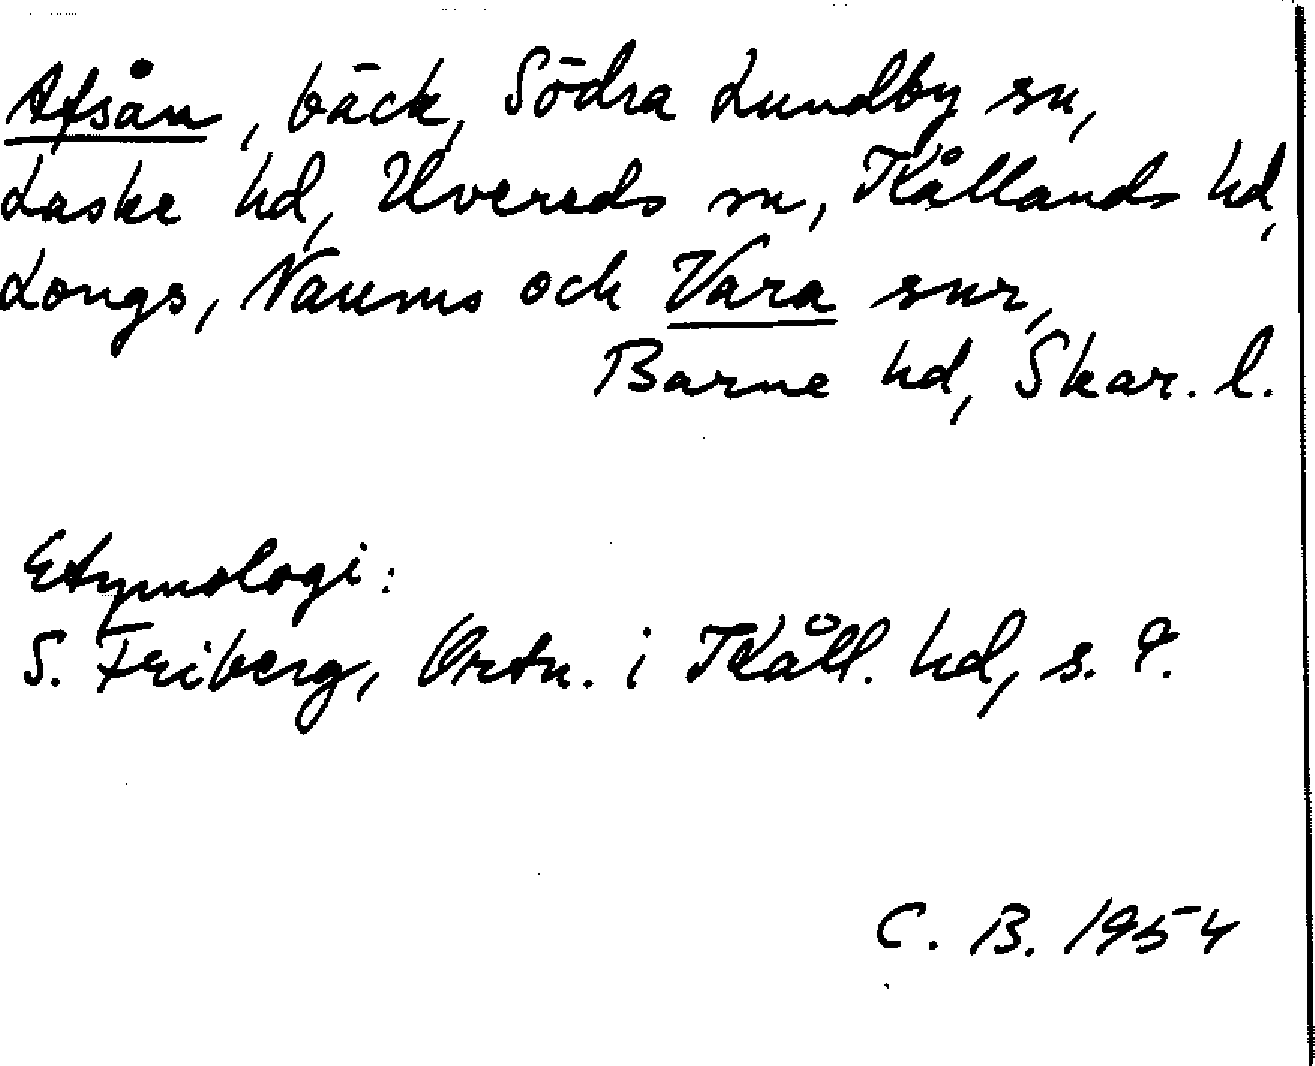 Afsån, bäck, Södra Lundby sn,
Laske hd, Uvereds sn, Kållands hd,
Longs, Naums och Vara snr,
Barne hd, Skar. l.
Etymologi:
S. Friberg, Ortn. i Kåll. hd, s. 9.
C. B. 1954